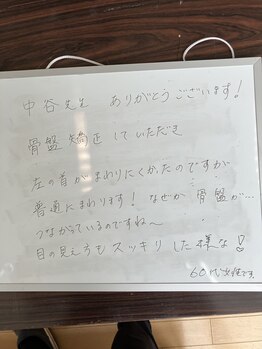 中谷先生 ありがとうございます!
骨盤矯正していただき
左の首がまわりにくかったのですが
普通にまわります! なぜか骨盤が...
つながっているのですね〜
目の見え方もスッキリした様な!
60代女性です。